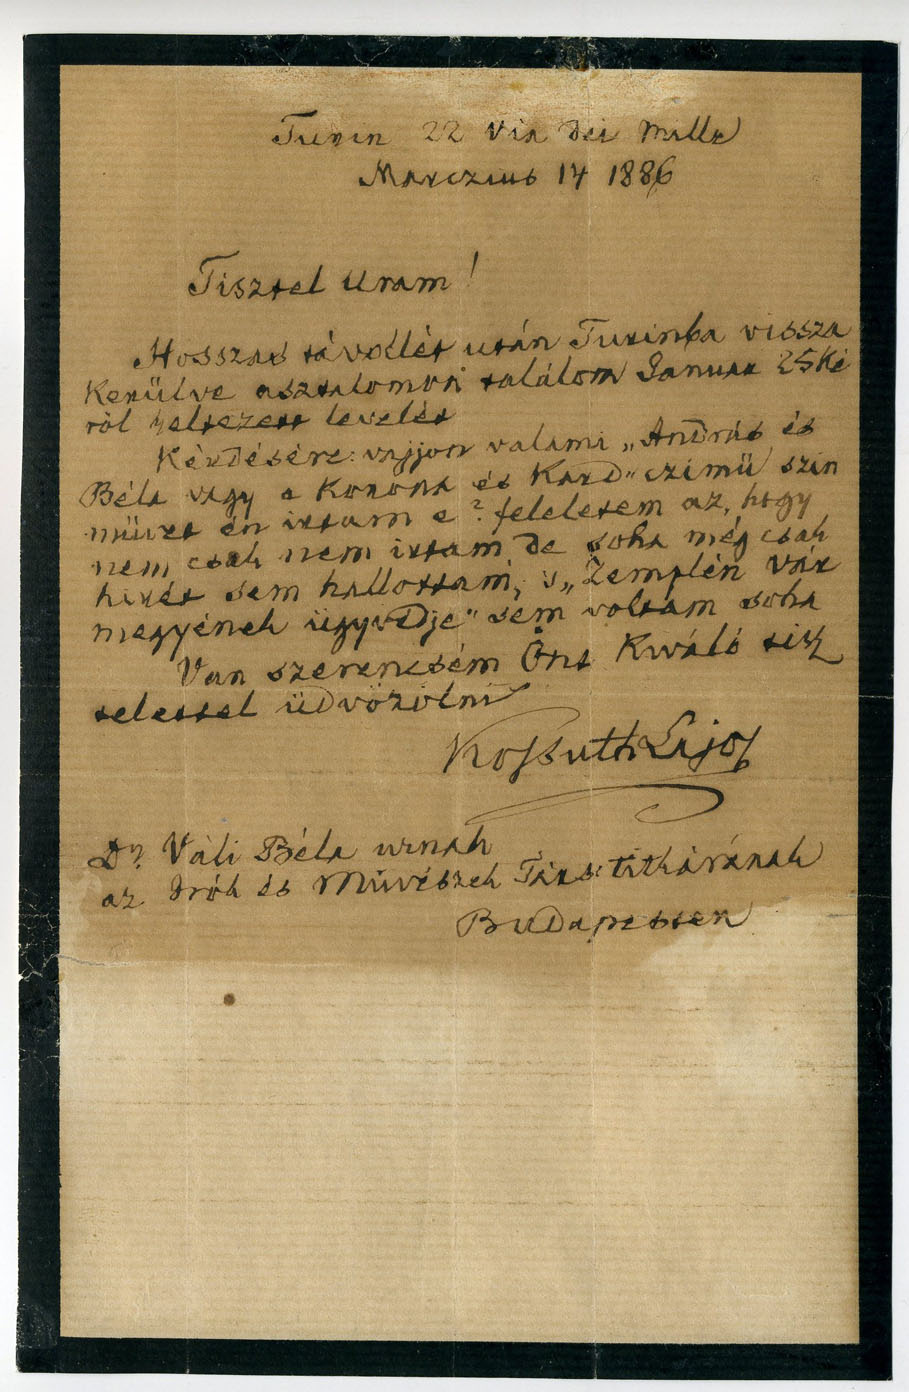 Turin 22 Via dei Mille
Marczius 14 1886
Tisztel Uram!
Hosszas távollét után Turinba vissza
kerülve asztalomon találom Januar 25ké
ről keltezett levelét
Kérdésére: vajjon valami „András és
Béla vagy a Korona és Kard" czimü szin
müvet én irtam e? feleletem az, hogy
nem csak nem irtam, de soha még csak
hirét sem hallottam, s „Zemplén vár
megyének ügyvédje" sem voltam soha
Van szerencsém Önt kiváló tisz
telettel üdvözölni
Kossuth Lajos
Dr. Váli Béla urnak
az Irók és Müvészek Társ. titkárának
Budapesten